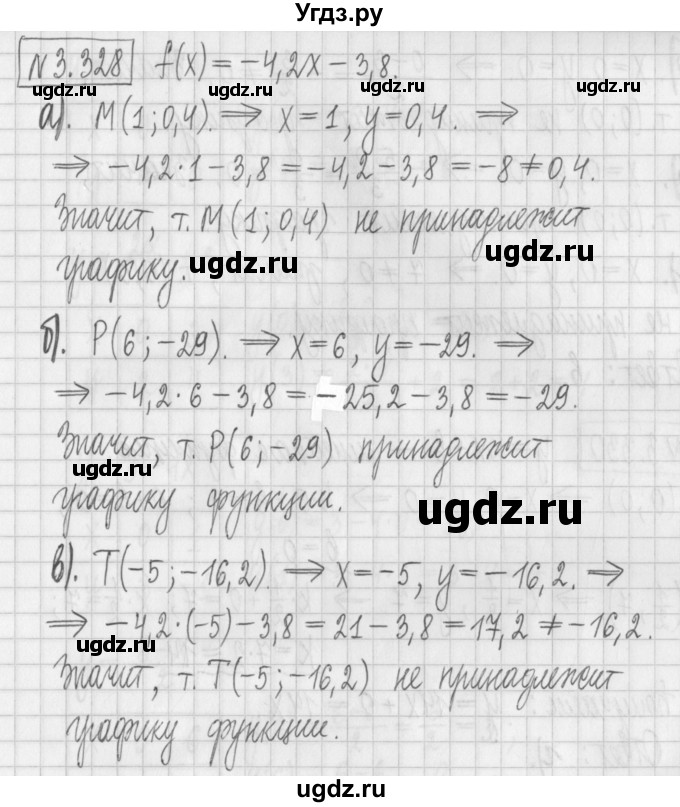 Угдз.ру
N3.328 f(x)=-4,2x-3,8.
ugdz.ru ugdz.ru
а). M(1;0,4). ⟹ x=1, y=0,4. ⟹
ugdz.ru
⟹ -4,2·1-3,8=-4,2-3,8=-8≠0,4.
Значит, т. M(1;0,4) не принадлежит
графику. ugdz.ru ugdz.ru
б). P(6;-29). ⟹ x=6, y=-29. ⟹
⟹ -4,2·6-3,8=-25,2-3,8=-29.
Значит, т. P(6;-29) принадлежит
ugdz.ru
графику функции. ugdz.ru
в). T(-5;-16,2) ⟹ x=-5, y=-16,2. ⟹
⟹ -4,2·(-5)-3,8=21-3,8=17,2≠-16,2.
ugdz.ru
Значит, т. T(-5;-16,2) не принадлежит
графику функции.
ugdz.ru